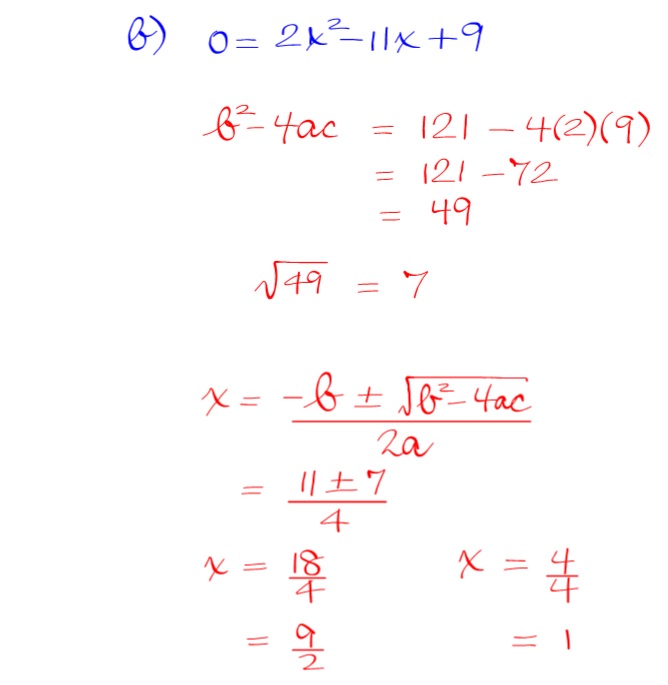 b) 0 = 2x² - 11x + 9
b² - 4ac = 121 - 4(2)(9)
= 121 - 72
= 49
√49 = 7
x = (-b ± √(b² - 4ac))/(2a)
= (11 ± 7)/4
x = 18/4    x = 4/4
= 9/2    = 1